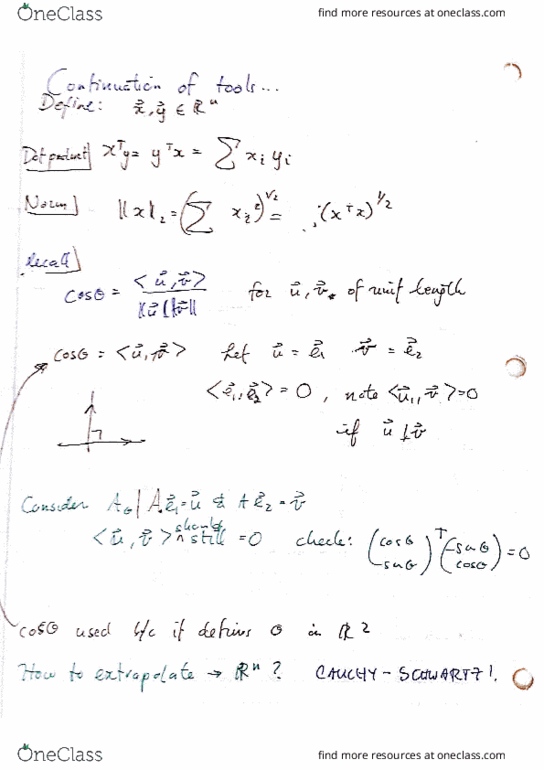 OneClass
find more resources at oneclass.com
Continuation of tools...
Define: x⃗, y⃗ ∈ ℝⁿ
Dot product] xᵀy = yᵀx = ∑ xᵢ yᵢ
Norm] ||x||₂ = (∑ xᵢ²)^1/2 = (xᵀx)^1/2
Recall]
cosθ = <u⃗, v⃗> / ||u⃗|| ||v⃗|| for u⃗, v⃗ of unit length
cosθ = <u⃗, v⃗> Let u⃗ = e⃗₁ v⃗ = e⃗₂
<e⃗₁, e⃗₂> = 0 , note <u⃗, v⃗> = 0
if u⃗ ⊥ v⃗
Consider A_θ | A e⃗₁ = u⃗ & A e⃗₂ = v⃗
<u⃗, v⃗> should ^ still = 0 check: (cosθ -sinθ)ᵀ (-sinθ cosθ) = 0
cosθ used b/c it defines θ in ℝ²
How to extrapolate → ℝⁿ? CAUCHY-SCHWARTZ!
OneClass
find more resources at oneclass.com